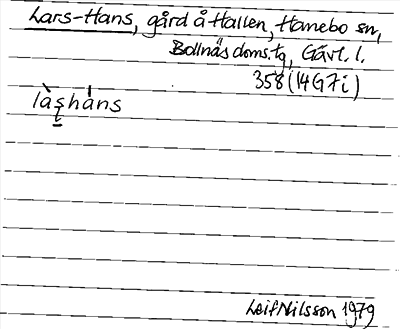 Lars-Hans, gård å Hallen, Hanebo sn,
Bollnäs doms.tg, Gävl. l.
358 (14G7i)
làṣháns
Leif Nilsson 1979